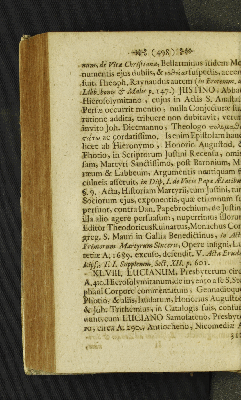 (498)
num, de Vita Christiana, Bellarminus itidem Mo-
numentis ejus dubiis, & suspectis, accen-
suit. Theoph. Raynaudus autem (in Erotemat.
Libb. bonis & Malis p. 147.) JUSTINO, Abbati
Hierosolymitano, cujus in Actis S. Anastasii
Persæ occurrit mentio, nulla Conjecturæ suæ
ratione addita, tribuere non dubitavit, verum
invito Joh. Dicemanno, Theologo
ac cordatissimo, Is enim Epistolam hanc
licet ab Hieronymo, Honorio Augustod, &
Photio, in Scriptorum Justini Recensu, omis-
sam, Martyri Sanctissimo, post Baronium, M
ræum & Labbeum, Argumentis nonnullis
culneis asseruit, in Disp. I. de
§. 9. Acta, Historiam Martyrii, cum Justini, tum
Sociorum ejus, exponentia, quæ etiamnum
persunt, contra Dan. Papebrochium, de Justino
illa alio agere persuasum, nuperrimus illorum
Editor Theodoricus Ruinartus, Monachus Con-
greg. S. Mauri in Gallia Benedictinus, in
Primorum Martyrum Sinceris, Opere insigni, Lu-
tetiæ A. 1689. excuso, defendit. V. Acta Erudit.
Lips. T. I. Supplem. Sect. XII. p. 601.
XLVIII. LUCIANUM, Presbyterum circ
A. 410. Hierosolymitanum de invento a se S. Ste-
phani Corpore commentatum, Gennadioque
Photio, & aliis, laudatum, Honorius Augustod.
& Joh. Trithemius, in Catalogis suis, confu-
nunt cum LUCIANO Samosateno, Presbyte-
ro, circa A. 290. Antiocheno, Nicomediæ A.